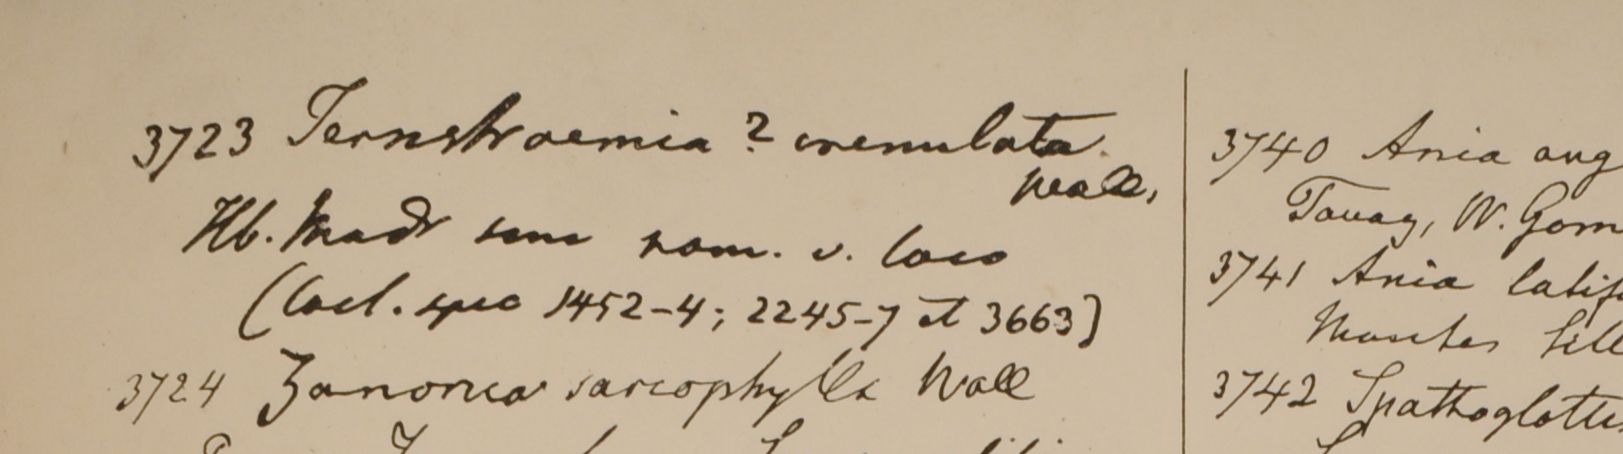 3723 Ternstroemia ? crenulata
Wall.
Hb. Madr sine nom. v. loco
(Coel. spec 1452-4; 2245-7 et 3663)
3724 Zanonia sarcophylla Wall
3740 Ania ang
Tavay, W. Gom
3741 Ania latif
3742 Spathoglottis